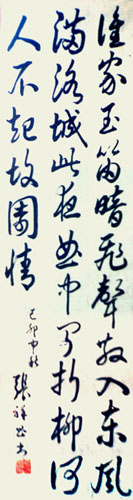 谁家玉笛暗飛聲散入东風
满洛城此夜曲中闻折柳何
人不起故園情
己卯中秋
張祥书